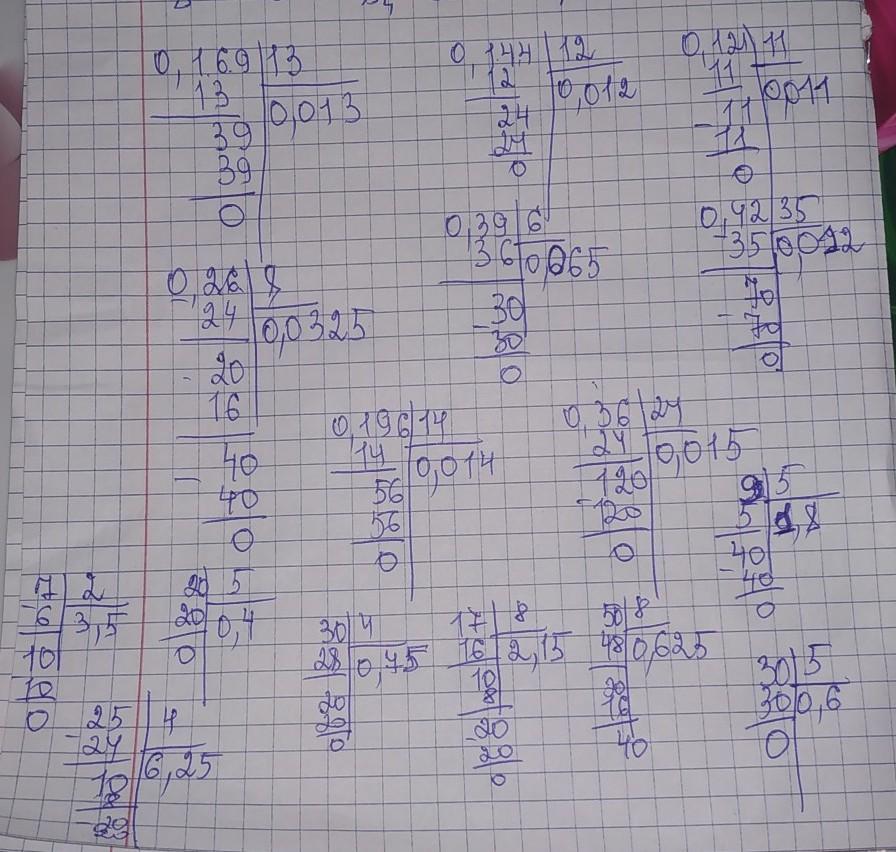 0,169 | 13
13 | 0,013
39
39
0
0,144 | 12
12 | 0,012
24
24
0
0,121 | 11
11 | 0,011
- 11
11
0
0,26 | 8
- 24 | 0,0325
- 20
16
- 40
40
0
0,39 | 6
36 | 0,065
- 30
30
0
0,42 | 35
- 35 | 0,012
70
- 70
0
0,196 | 14
14 | 0,014
56
56
0
0,36 | 24
24 | 0,015
120
- 120
0
9 | 5
5 | 1,8
- 40
40
0
7 | 2
- 6 | 3,5
10
10
0
20 | 5
20 | 0,4
0
30 | 4
28 | 0,75
20
20
0
17 | 8
16 | 2,15
10
8
20
20
0
50 | 8
48 | 0,625
20
16
40
30 | 5
30 | 0,6
0
25 | 4
- 24 | 6,25
10
8